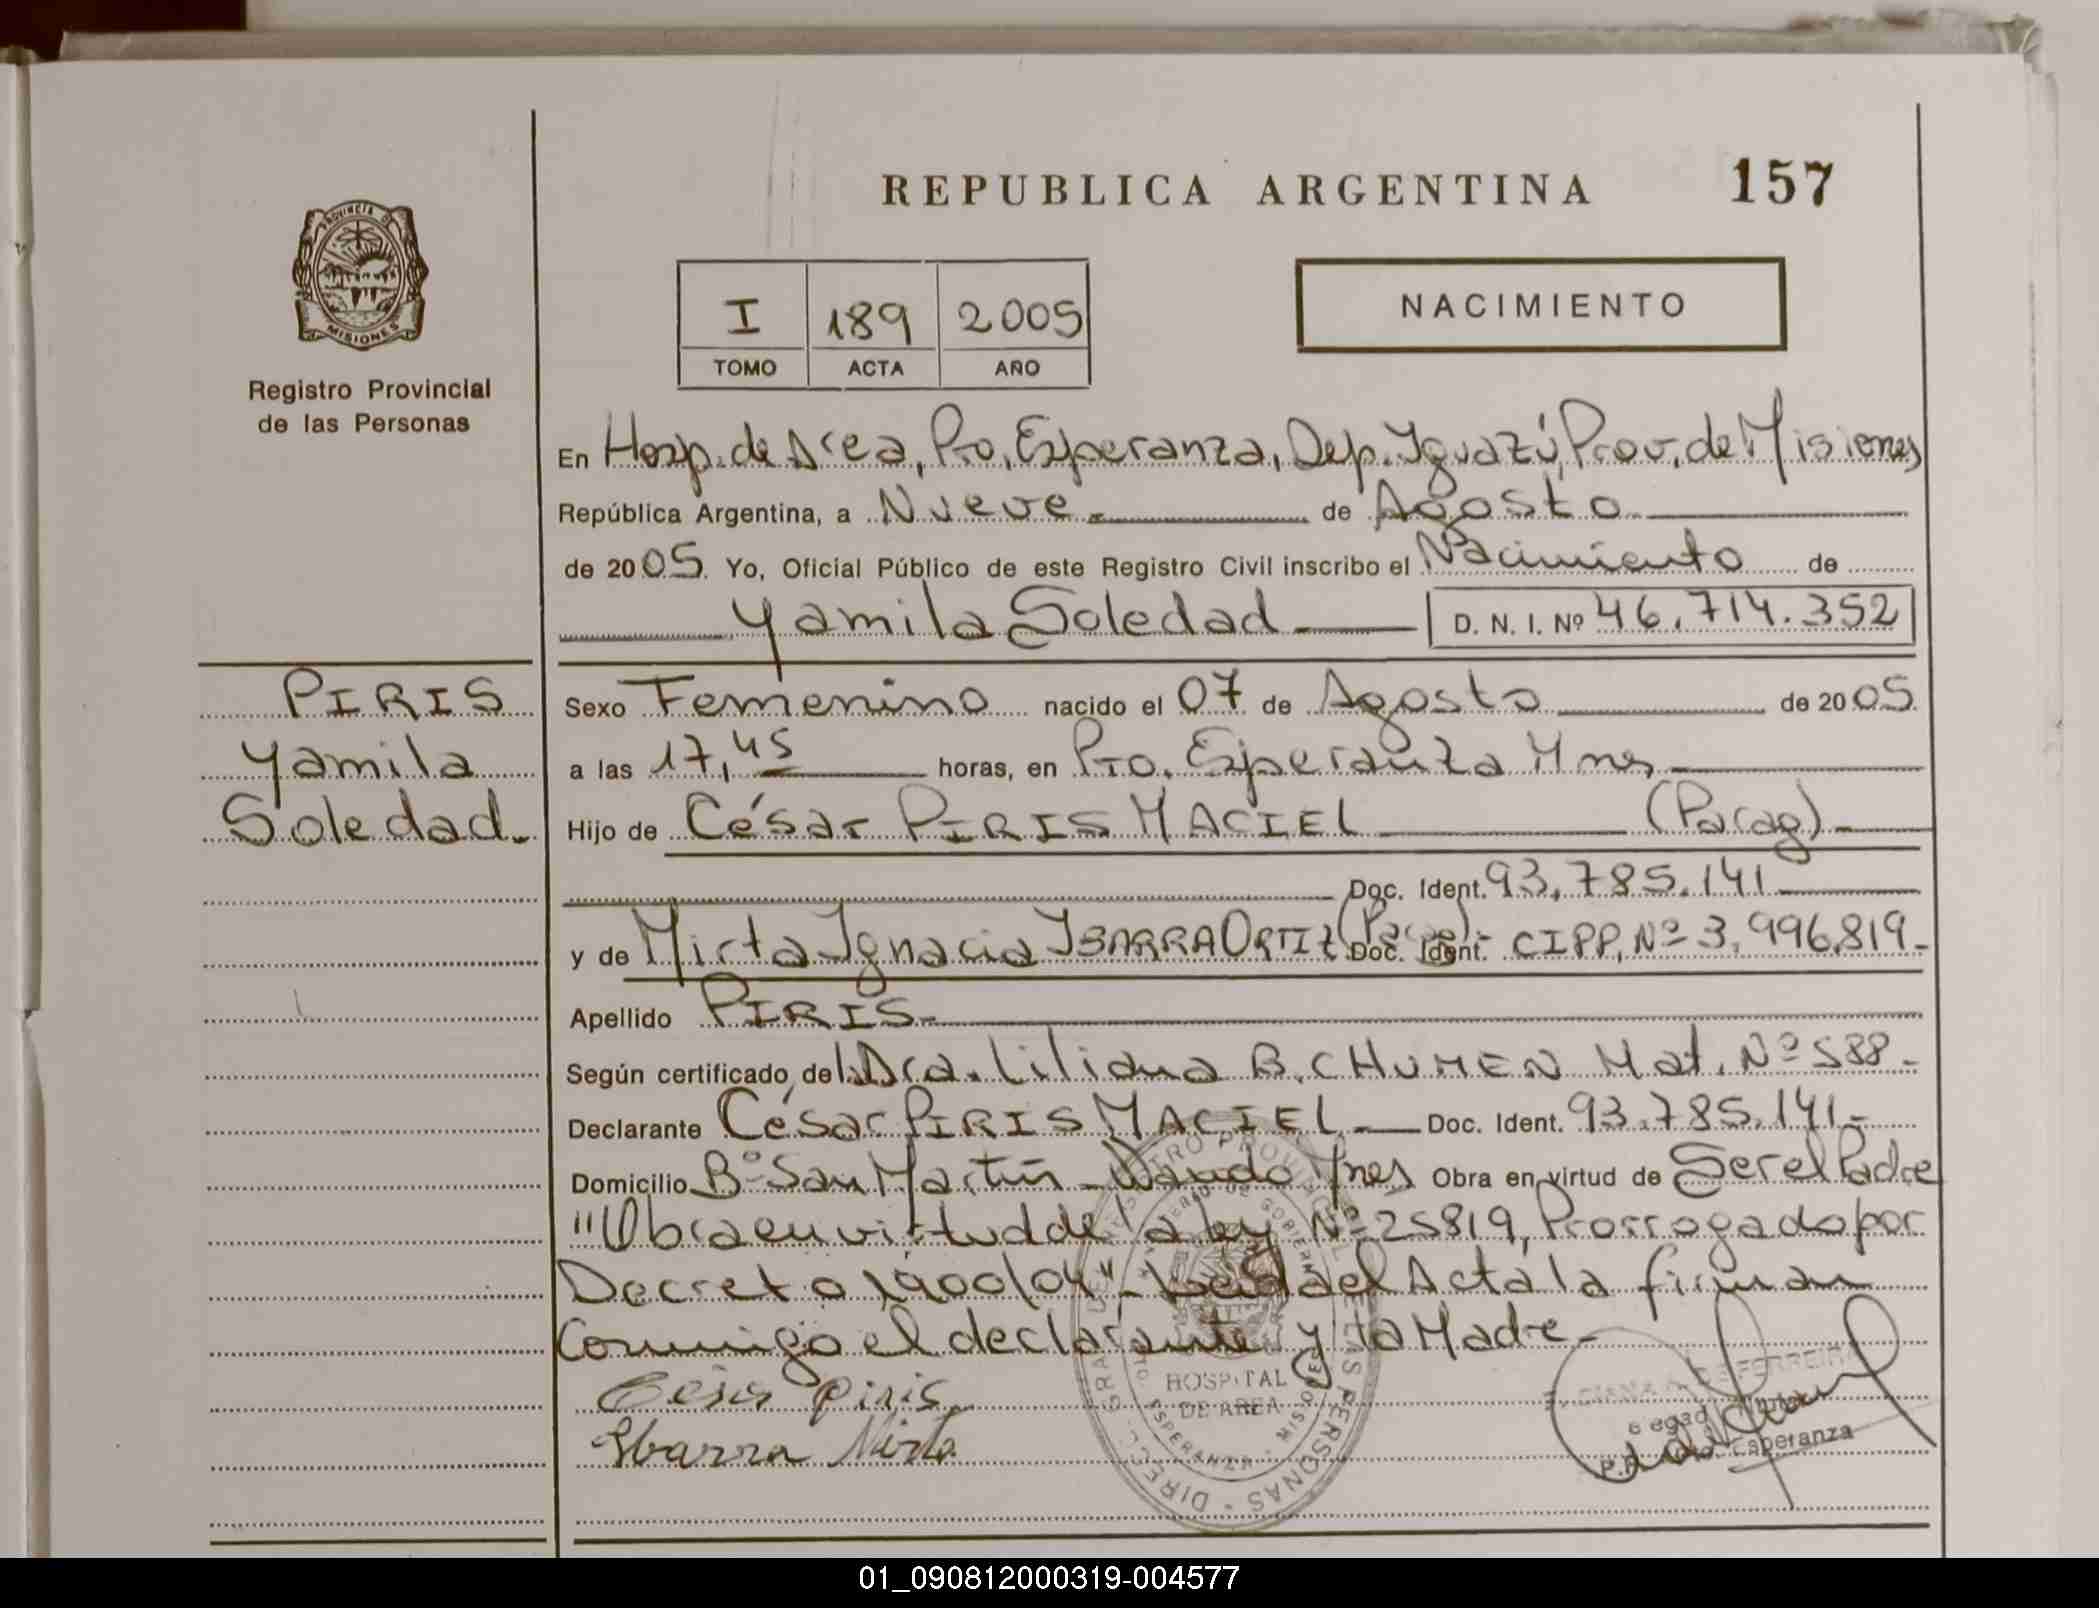 REPUBLICA ARGENTINA
157
PROVINCIA DE
MISIONES
Registro Provincial
de las Personas
I 189 2005
TOMO ACTA AÑO
NACIMIENTO
En Hosp. de Area, Pto. Esperanza, Dep. Iguazú, Prov. de Misiones
República Argentina, a Nueve de Agosto
de 2005 Yo, Oficial Público de este Registro Civil inscribo el Nacimiento de
Yamila Soledad D. N. I. Nº 46.714.352
PIRIS
Yamila
Soledad.
Sexo Femenino nacido el 07 de Agosto de 2005
a las 17,45 horas, en Pto. Esperanza Mnes
Hijo de César PIRIS MACIEL (Parag)
Doc. Ident. 93.785.141
y de Mirta Ignacia YBARRA ORTIZ (Parag) Doc. Ident. CIPP, Nº 3,996,819-
Apellido PIRIS-
Según certificado de la Dra. Liliana B. CHUMEN Mat. Nº 588-
Declarante César PIRIS MACIEL Doc. Ident. 93.785.141-
Domicilio Bº San Martín - Wanda Mnes Obra en virtud de Ser el Padre
"Obra en virtud de la ley Nº 25819, Prorrogado por
Decreto 1900/04"- Leída el Acta la firman
Conmigo el declarante y la Madre-
Cesar Piris
Ybarra Mirta
HOSPITAL
DE AREA
ESPERANZA - MISIONES
DE FERREIRA
Pto. Esperanza
01_090812000319-004577